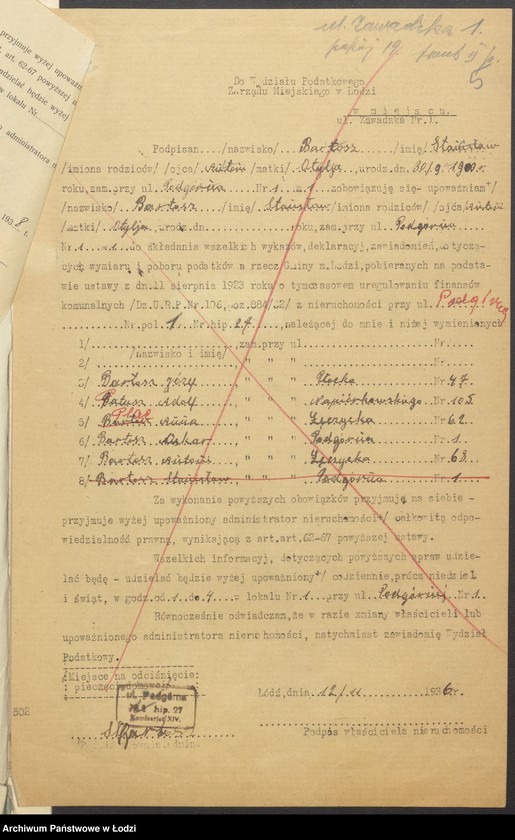 ul. Zawadzka 1.
pokój 19.
5
przyjmuje wyżej upoważn
art. 62-67 powyższej u
dzielać będzie wyżej
w lokalu Nr.
o administratora n
193 8 r.
Do Wydziału Podatkowego
Zarządu Miejskiego w Łodzi
w miejscu.
ul. Zawadzka Nr.1.
Podpisan.../nazwisko/ Bartosz /imię/ Stanisław
/imiona rodziców/ /ojca/ Antoni /matki/ Otylja urodz.dn. 30/9. 1900 r.
roku,zam.przy ul. Podgórna Nr 1 m 1 zobowiązuję się- upoważniam+/
/nazwisko/ Bartosz /imię/ Stanisław /imiona rodziców/ /ojca/ Antoni
/matki/ Otylja urodz.dn. roku,zam.przy ul. Podgórna
Nr 1 m 1 do składania wszelkich wykazów,deklaracyj,zawiadomień,dotyczą-
cych wymiaru i poboru podatków na rzecz Gminy m.Łodzi,pobieranych na podsta-
wie ustawy z dn.11 sierpnia 1923 roku o tymczasowem uregulowaniu finansów
komunalnych /Dz.U.R.P.Nr.106, poz.884/32/ z nieruchomości przy ul. Podgórnej
Nr pol. 1 Nr hip. 27 ,należącej do mnie i niżej wymienionych
1/ ,zam.przy ul Nr
/nazwisko i imię/
2/ , " " " Nr
3/ Bartosz Józef , " " " Płocka Nr 47.
4/ Adolf , " " " Napiórkowskiego Nr 105
5/ , " " " Łęczycka Nr 62.
6/ Bartosz Oskar , " " " Podgórna Nr 1.
7/ Bartosz Antoni , " " " Łęczycka Nr 68.
8/ Bartosz Stanisław , " " " Podgórna Nr 1
Za wykonanie powyższych obowiązków przyjmuję na siebie -
przyjmuje wyżej upoważniony administrator nieruchomości+/ całkowitą odpo-
wiedzialność prawną, wynikającą z art.art.62-67 powyższej ustawy.
Wszelkich informacyj, dotyczących powyższych spraw udzie-
lać będę - udzielać będzie wyżej upoważniony+/ codziennie,prócz niedziel
i świąt, w godz.od 1 do 4 w lokalu Nr 1 przy ul. Podgórnej Nr 1.
Równocześnie oświadczam,że w razie zmiany właścicieli lub
upoważnionego administratora nieruchomości, natychmiast zawiadomię Wydział
Podatkowy.
/Miejsce na odciśnięcie:
: pieczęci domowej/ :
ul. Podgórna
№ 1 hip. 27
Komisarjat XIV.
Łódź,dnia 12/11 1936 r.
502
Podpis właściciela nieruchomości
Archiwum Państwowe w Łodzi